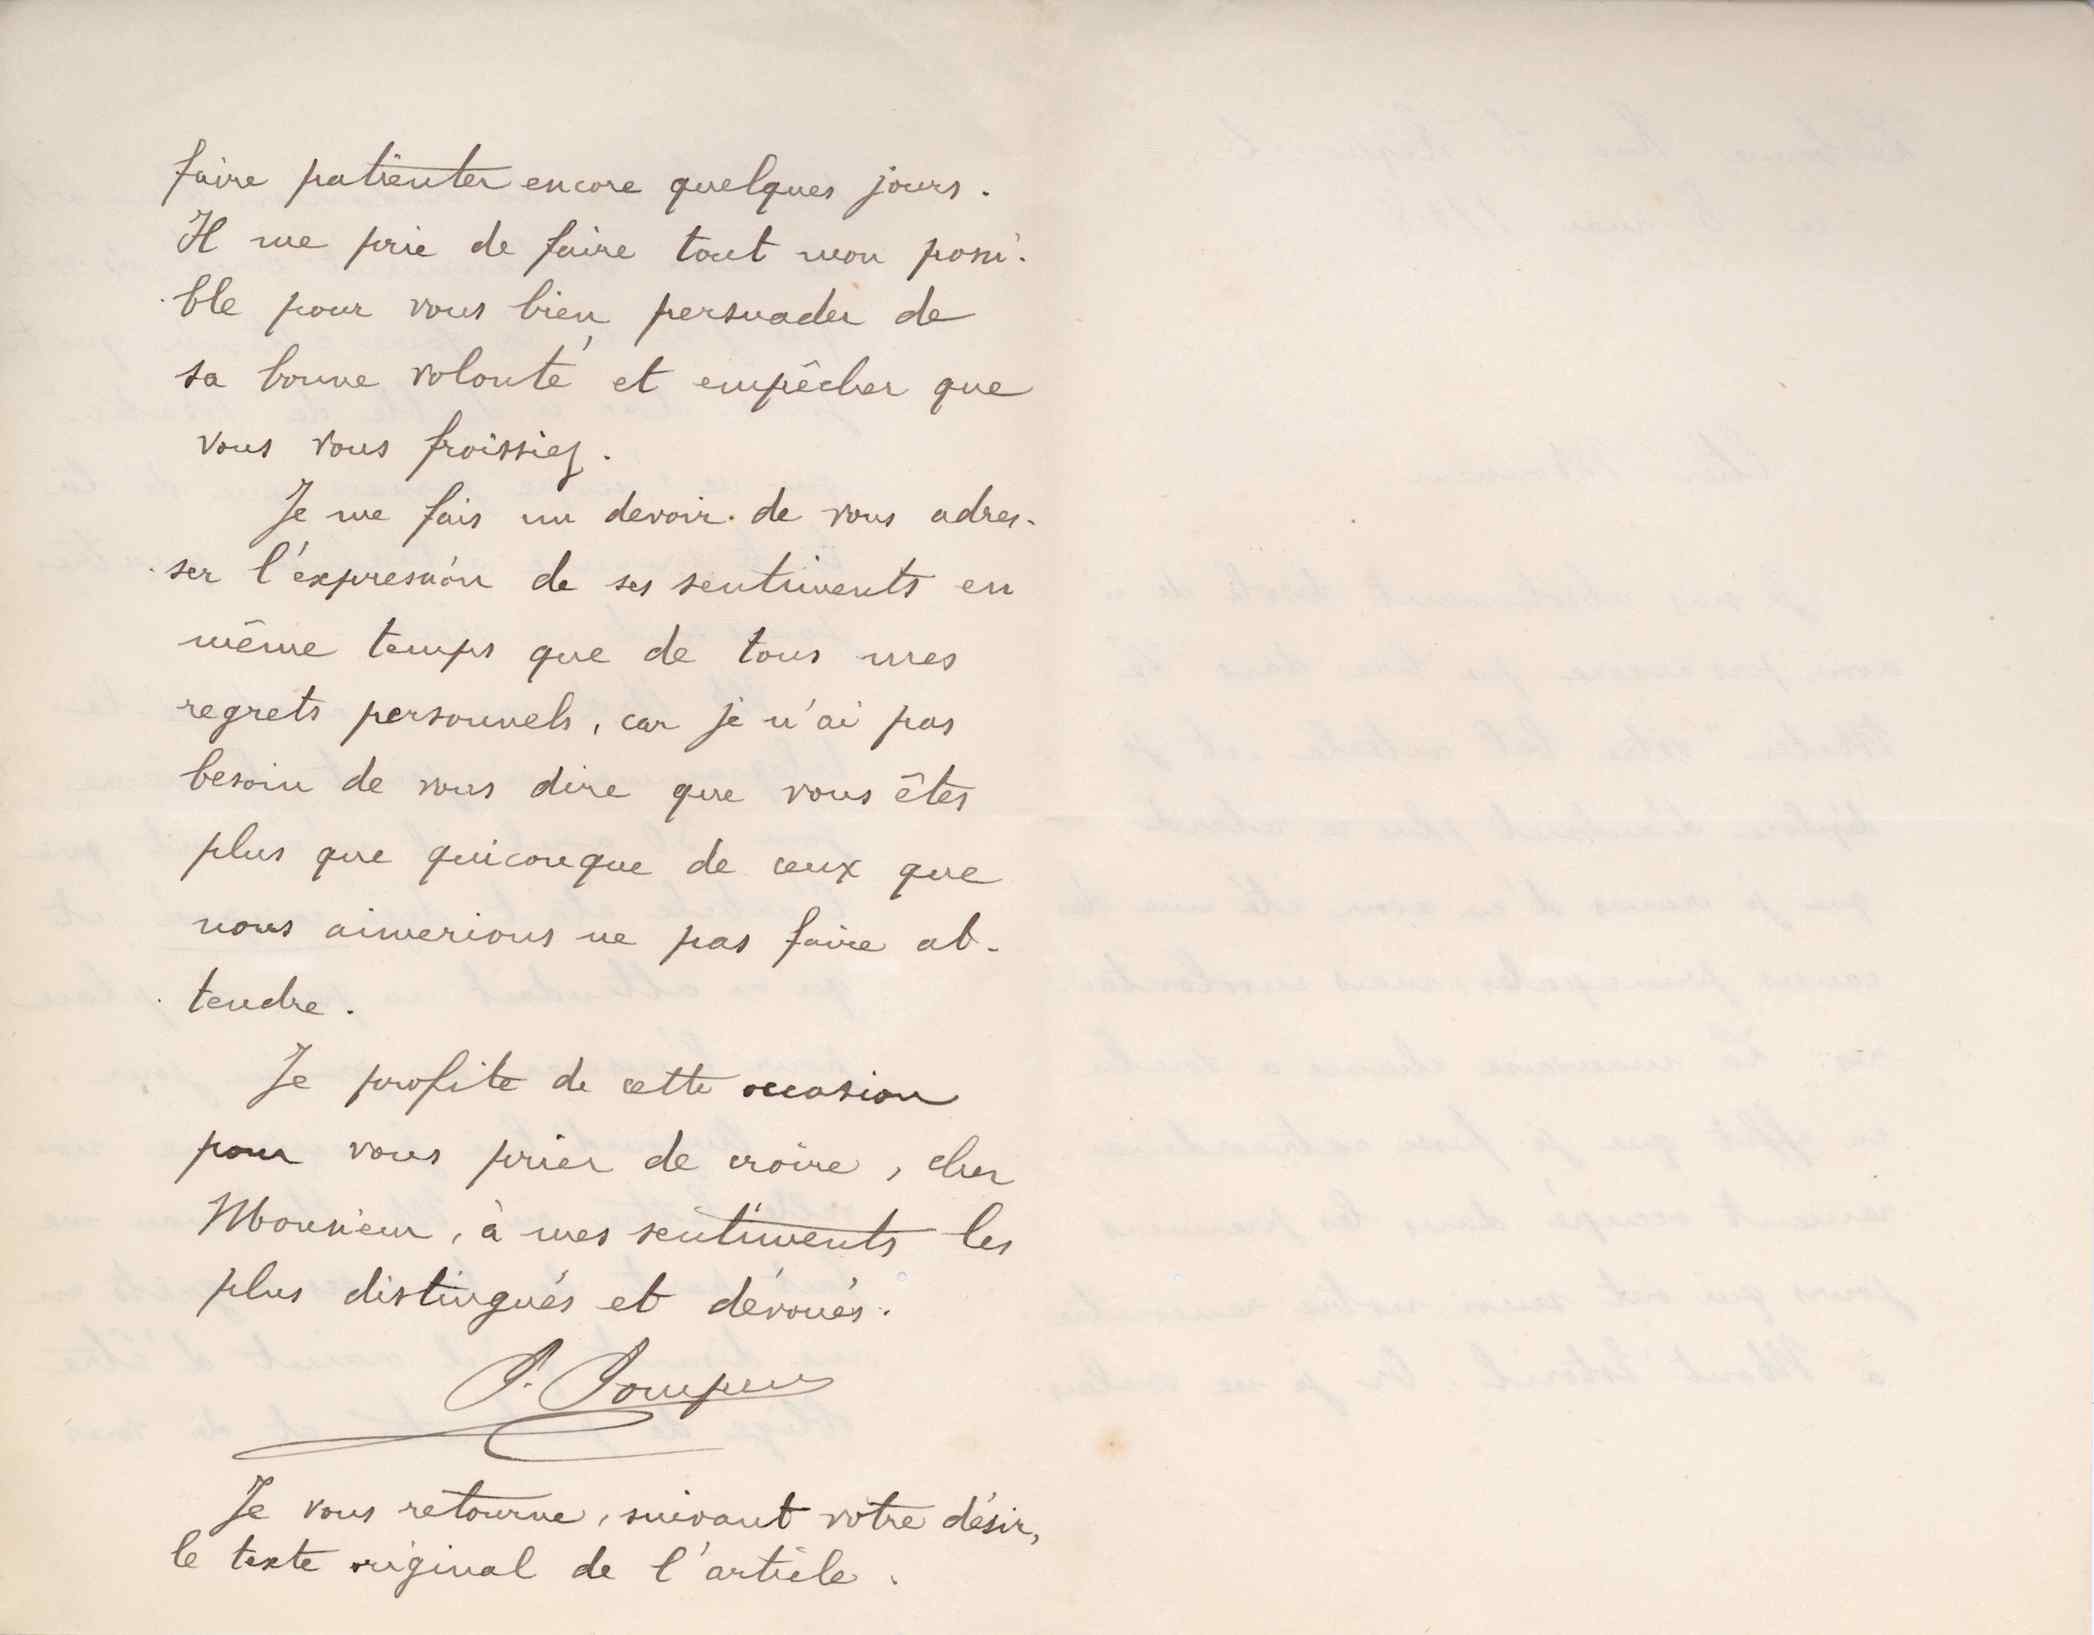 faire patienter encore quelques jours.
Il me prie de faire tout mon possi-
ble pour vous bien persuader de
sa bonne volonté et empêcher que
vous vous froissiez.
Je me fais un devoir de vous adres-
ser l'expression de ses sentiments en
même temps que de tous mes
regrets personnels, car je n'ai pas
besoin de vous dire que vous êtes
plus que quiconque de ceux que
nous aimerions ne pas faire at-
tendre.
Je profite de cette occasion
pour vous prier de croire, cher
Monsieur, à mes sentiments les
plus distingués et dévoués.
Je vous retourne, suivant votre désir,
le texte original de l'article.